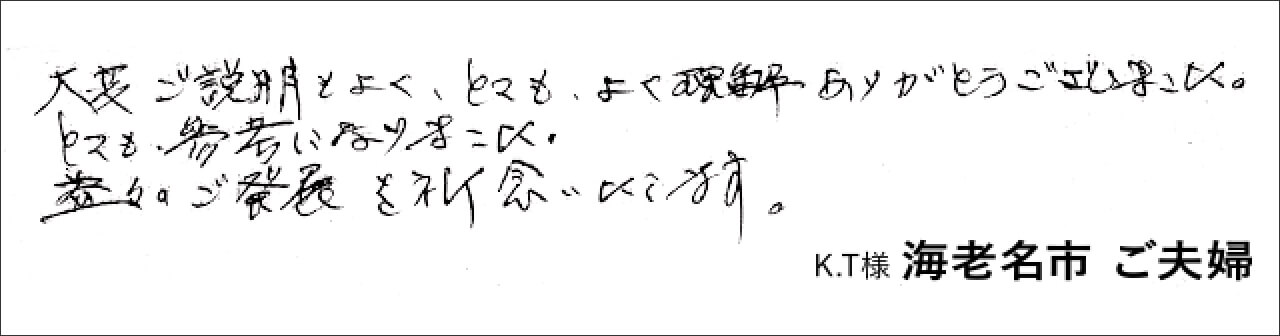 大変ご説明もよく、とても、よく理解ありがとうございました。
とても、参考になりました。
益々のご発展を祈念いたします。
K.T様 海老名市 ご夫婦